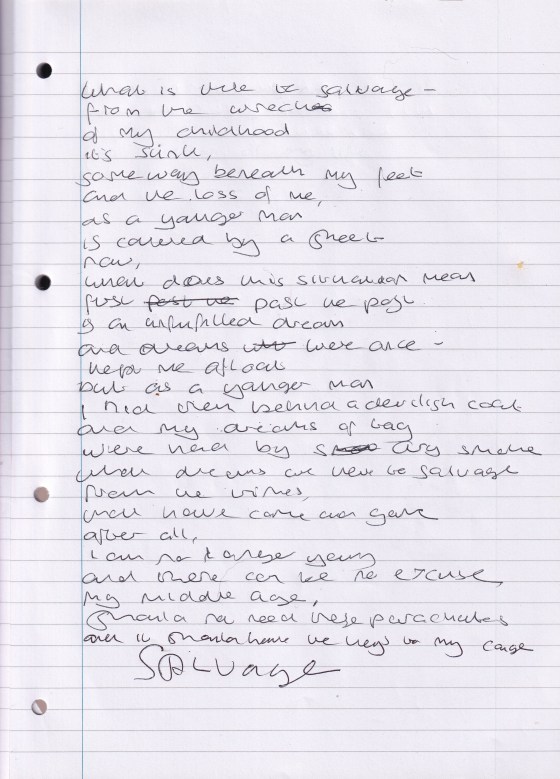 What is there to salvage –
from the wreck
of my childhood
it's sunk,
some way beneath my feet
and the loss of me,
as a younger man
is covered by a sheet
now,
what does this situation mean
past the past
of an unfulfilled dream
and dreams were once –
kept me afloat
but as a younger man
I hid them behind a devilish coat
and my dreams of
were by city smoke
what dreams are here to salvage
from the
that have come and gone
after all,
I am no longer young
and there can be no excuse,
my middle age,
should no need these parachutes
and it should have the keys to my cage
Salvage